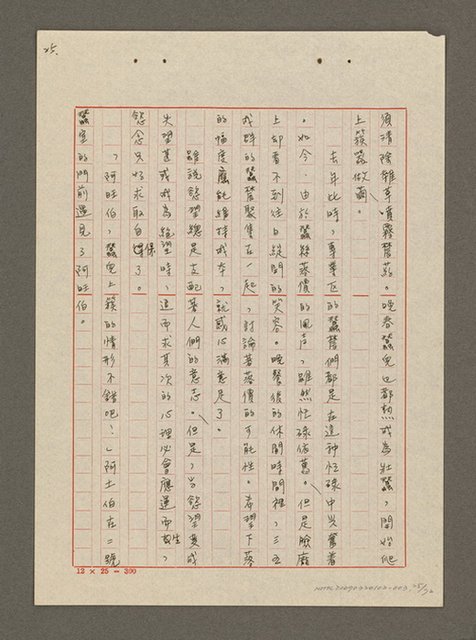 25.
須清除雜草噴霧醫葯。晚春蠶兒也都熟成為壯蠶，開始爬
上簇器做繭。
去年此時，專業區的蠶醫們都是在這神忙碌中興奮着
。如今，由於蠶絲落價的風声，雖然忙碌依舊。但是臉龐
上卻看不到往日綻開的笑容。晚餐後的休閒時間裡，三五
成群的蠶農聚集在一起，討論著落價的可能性。希望下落
的幅度應能維持成本，就感心滿意足了。
雖說慾望總是支配著人們的意志。但是，当慾望變成
失望甚或成為絕望時，退而求其次的心理必會應運而生，
慾念只好求取自保了。
「阿旺伯，蠶兒上簇的情形不錯吧！」阿土伯在二號
蠶室的門前遇見了阿旺伯。
12 × 25 = 300
25/76